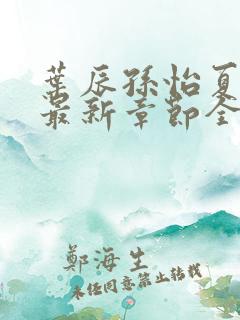 葉辰孫怡夏
最新章節全
鄭海生
未經同意禁止轉載